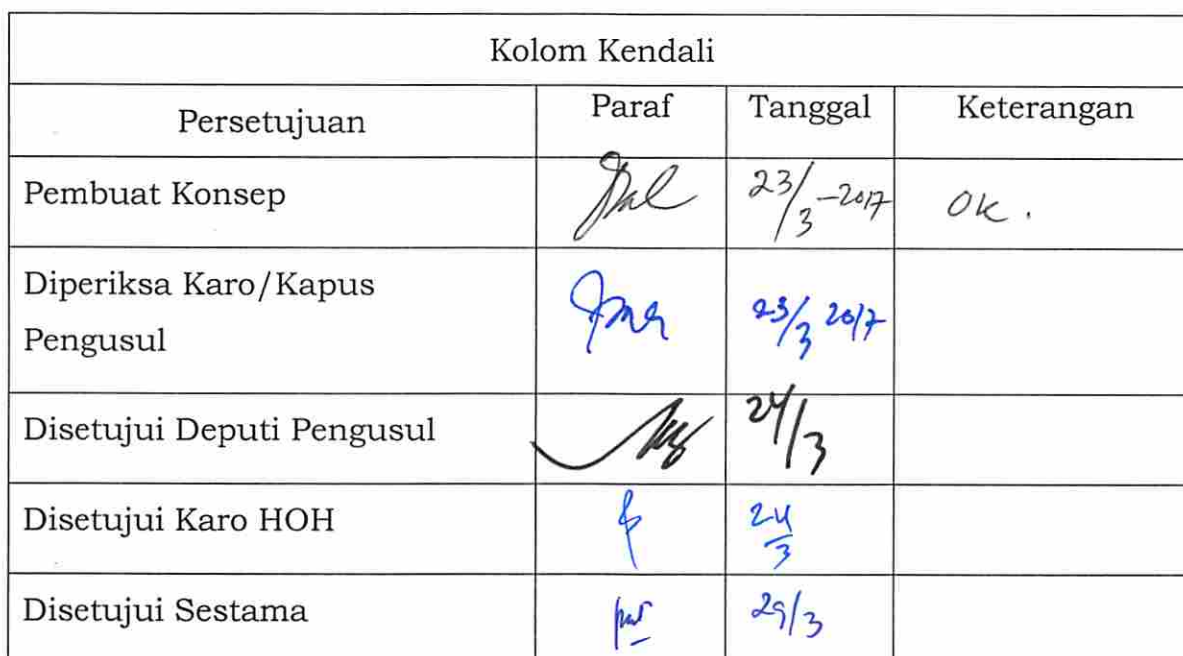 Kolom Kendali
Persetujuan Paraf Tanggal Keterangan
Pembuat Konsep 23/3-2017 OK.
Diperiksa Karo/Kapus
Pengusul 23/3 2017
Disetujui Deputi Pengusul 24/3
Disetujui Karo HOH 24/3
Disetujui Sestama 29/3